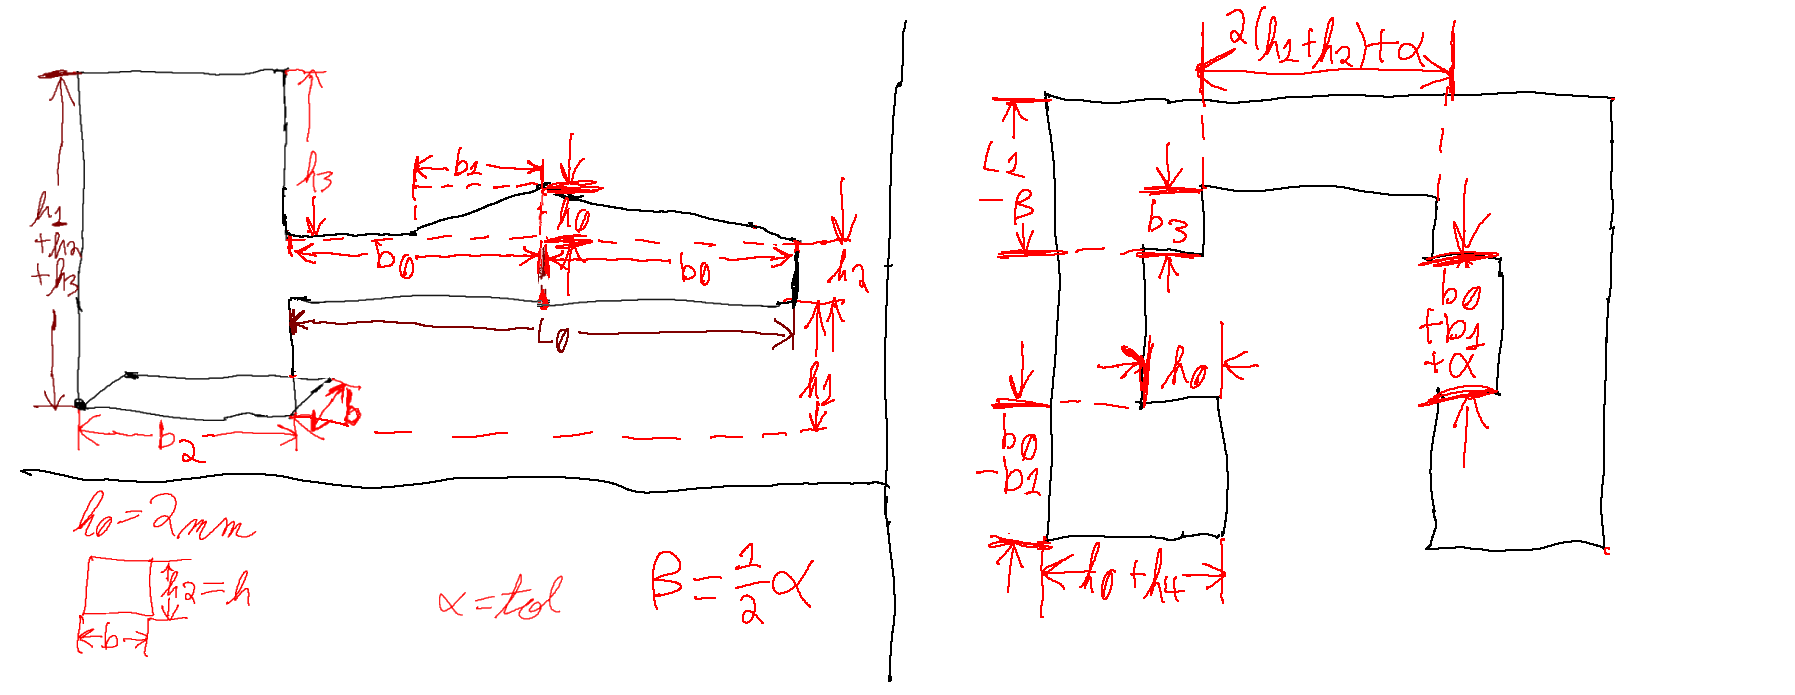 h1
+h2
+h3
h3
b1
h0
b0
b0
h2
L0
h1
b
b2
h0=2mm
h2=h
b
α=tol
β=1/2α
2(h1+h2)+α
L1
-β
b3
b0
+b1
+α
h0
b0
-b1
h0+h4